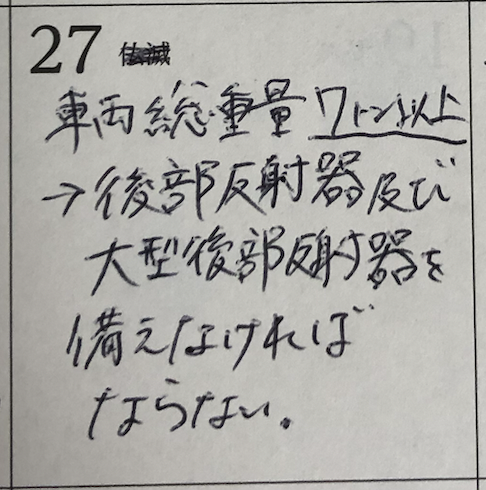 27 仏滅
車両総重量 7トン以上
→後部反射器及び
大型後部反射器を
備えなければ
ならない。